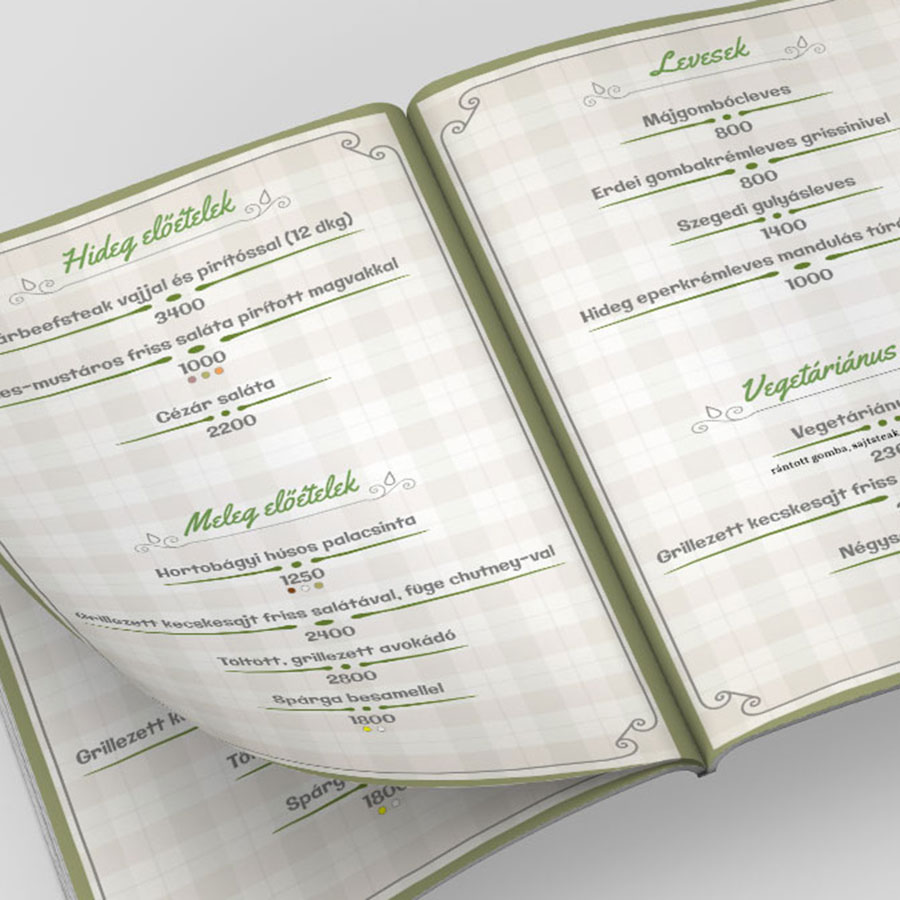 Hideg előételek
vajjal és pirítóssal (12 dkg)
3400
friss saláta pirított magvakkal
1000
Cézár saláta
2200
Meleg előételek
Hortobágyi húsos palacsinta
1250
Grillezett kecskesajt friss salátával, füge chutney-val
2400
Töltött, grillezett avokádó
2800
Spárga besamellel
1800
Grillezett
1800
Levesek
Májgombócleves
800
Erdei gombakrémleves grissinivel
800
Szegedi gulyásleves
1400
Hideg eperkrémleves mandulás
1000
Vegetáriánus
rántott gomba, sajtsteak,
Grillezett kecskesajt friss